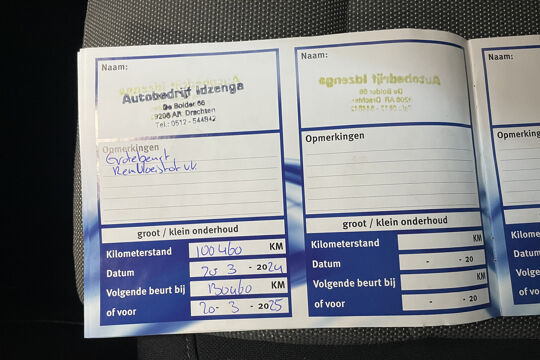 Naam:
Autobedrijf Idzenga
De Bolder 66
9206 AR Drachten
Tel.: 0512 - 544942
Opmerkingen
Grote beurt
Remvloeistof vv
groot / klein onderhoud
Kilometerstand 100460 KM
Datum 20 - 3 - 2024
Volgende beurt bij 130460 KM
of voor 20 - 3 - 2025
Naam:
Autobedrijf Idzenga
De Bolder 66
9206 AR Drachten
Opmerkingen
groot / klein onderhoud
Kilometerstand KM
Datum - - 20
Volgende beurt bij KM
of voor - - 20
Naam:
Opmerking
Kilometers
Datum
Volgende
of voor